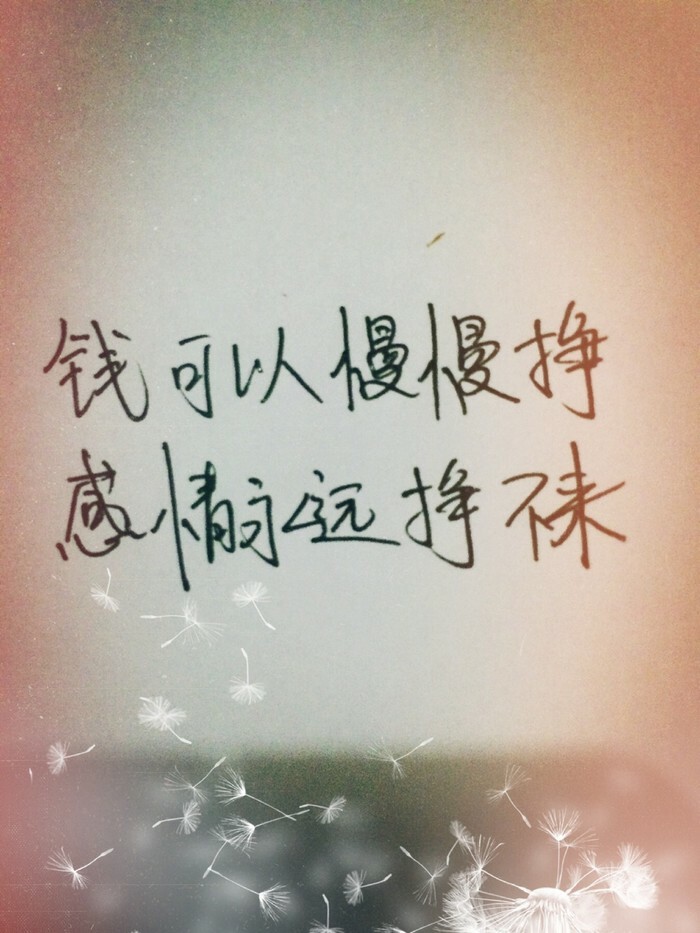 钱可以慢慢挣
感情永远挣不来